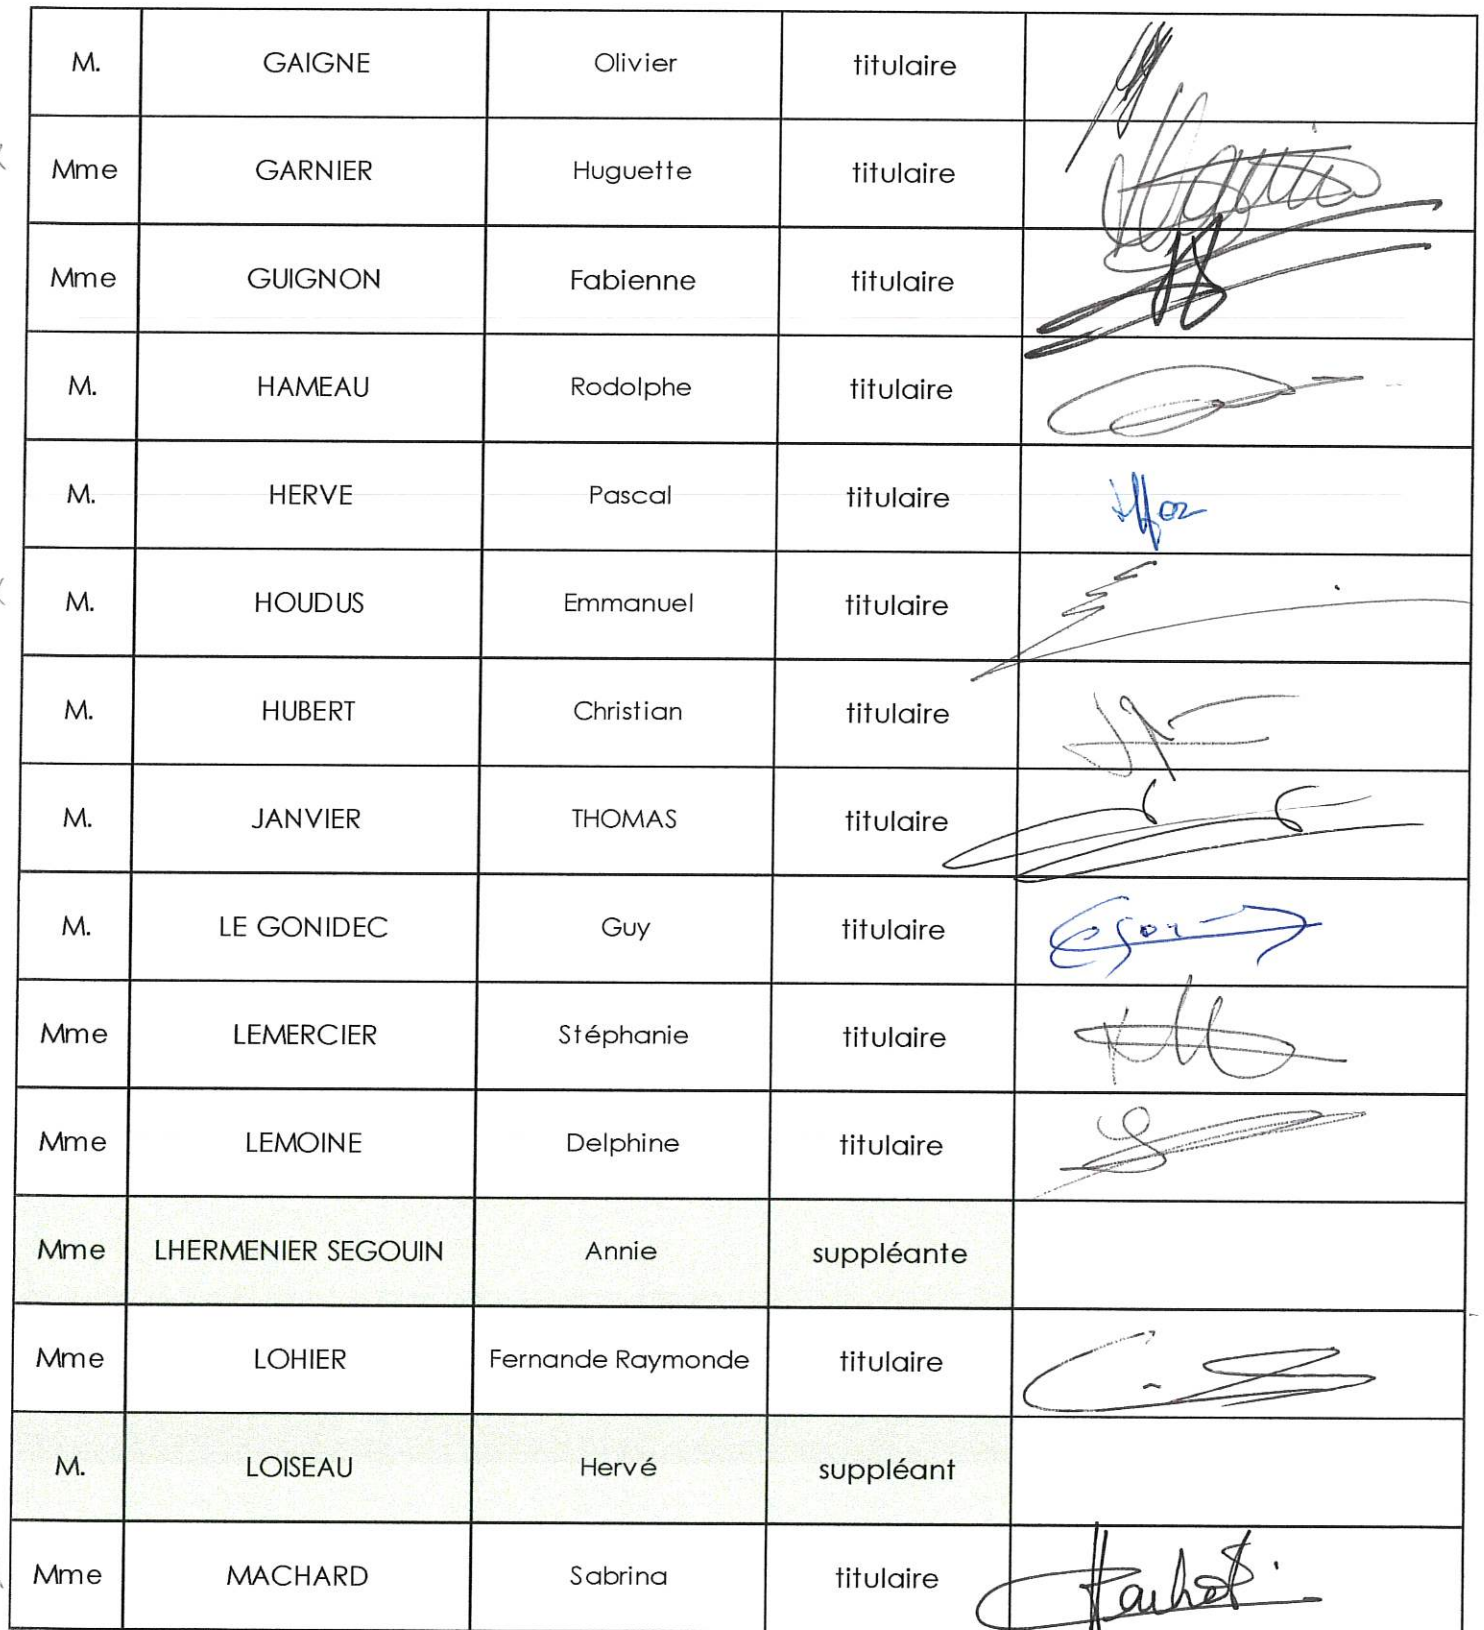 M. GAIGNE Olivier titulaire
Mme GARNIER Huguette titulaire
Mme GUIGNON Fabienne titulaire
M. HAMEAU Rodolphe titulaire
M. HERVE Pascal titulaire
M. HOUDUS Emmanuel titulaire
M. HUBERT Christian titulaire
M. JANVIER THOMAS titulaire
M. LE GONIDEC Guy titulaire
Mme LEMERCIER Stéphanie titulaire
Mme LEMOINE Delphine titulaire
Mme LHERMENIER SEGOUIN Annie suppléante
Mme LOHIER Fernande Raymonde titulaire
M. LOISEAU Hervé suppléant
Mme MACHARD Sabrina titulaire